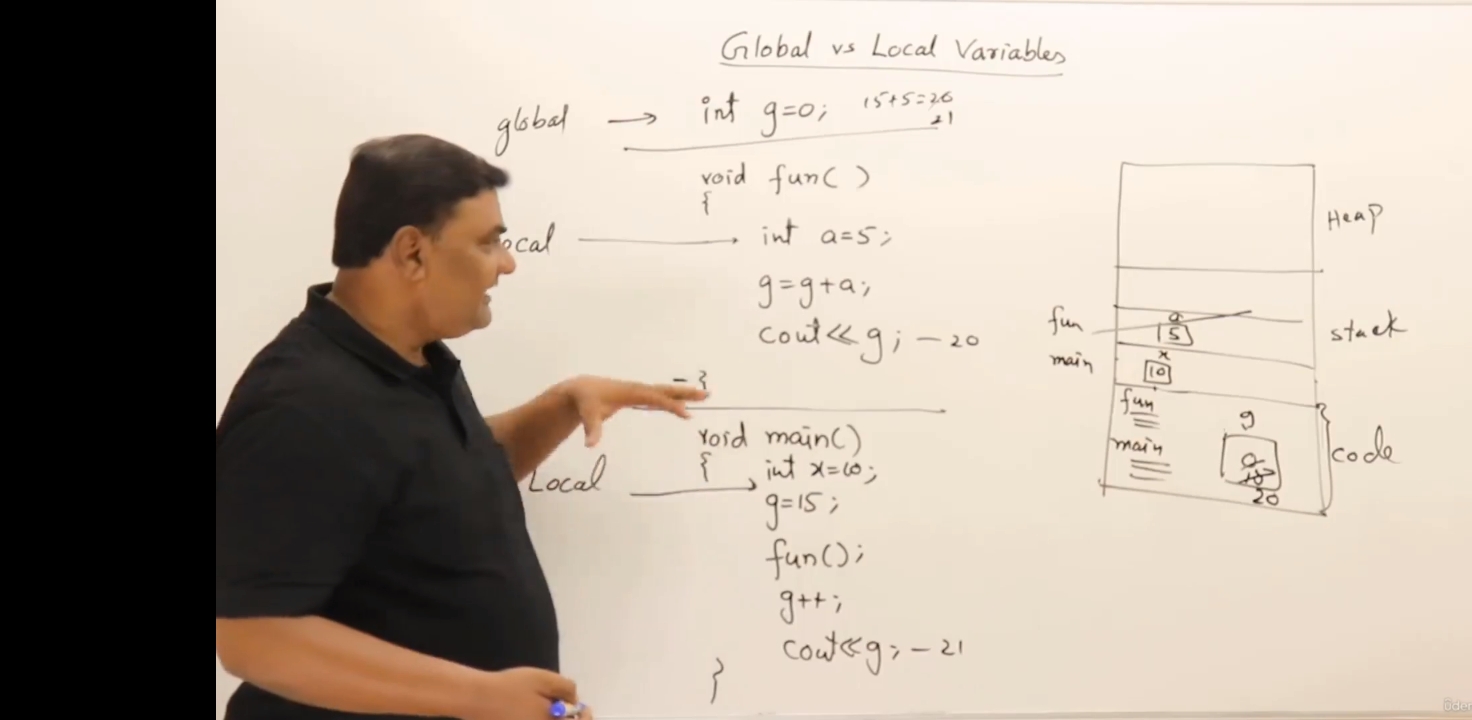 Global vs Local Variables
global → int g=0; 15+5=20
21
void fun( )
{
ocal → int a=5;
g=g+a;
cout<<g; - 20
}
void main()
{ int x=10;
Local → g=15;
fun();
g++;
cout<<g; - 21
}
Heap
stack
fun
a
5
main
x
10
fun
main
g
0
15
20
code